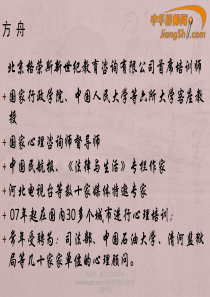 中华讲师网
JiangShi.com
方舟
北京格荣斯新世纪教育咨询有限公司首席培训师
国家行政学院、中国人民大学等六所大学客座教
授
国家心理咨询师督导师
中国民航报、《法律与生活》专栏作家
河北电视台等数十家媒体特邀专家
07年起在国内30多个城市进行心理培训;
常年受聘为:司法部、中国石油大学、清河监狱
局等几十家家单位的心理顾问。